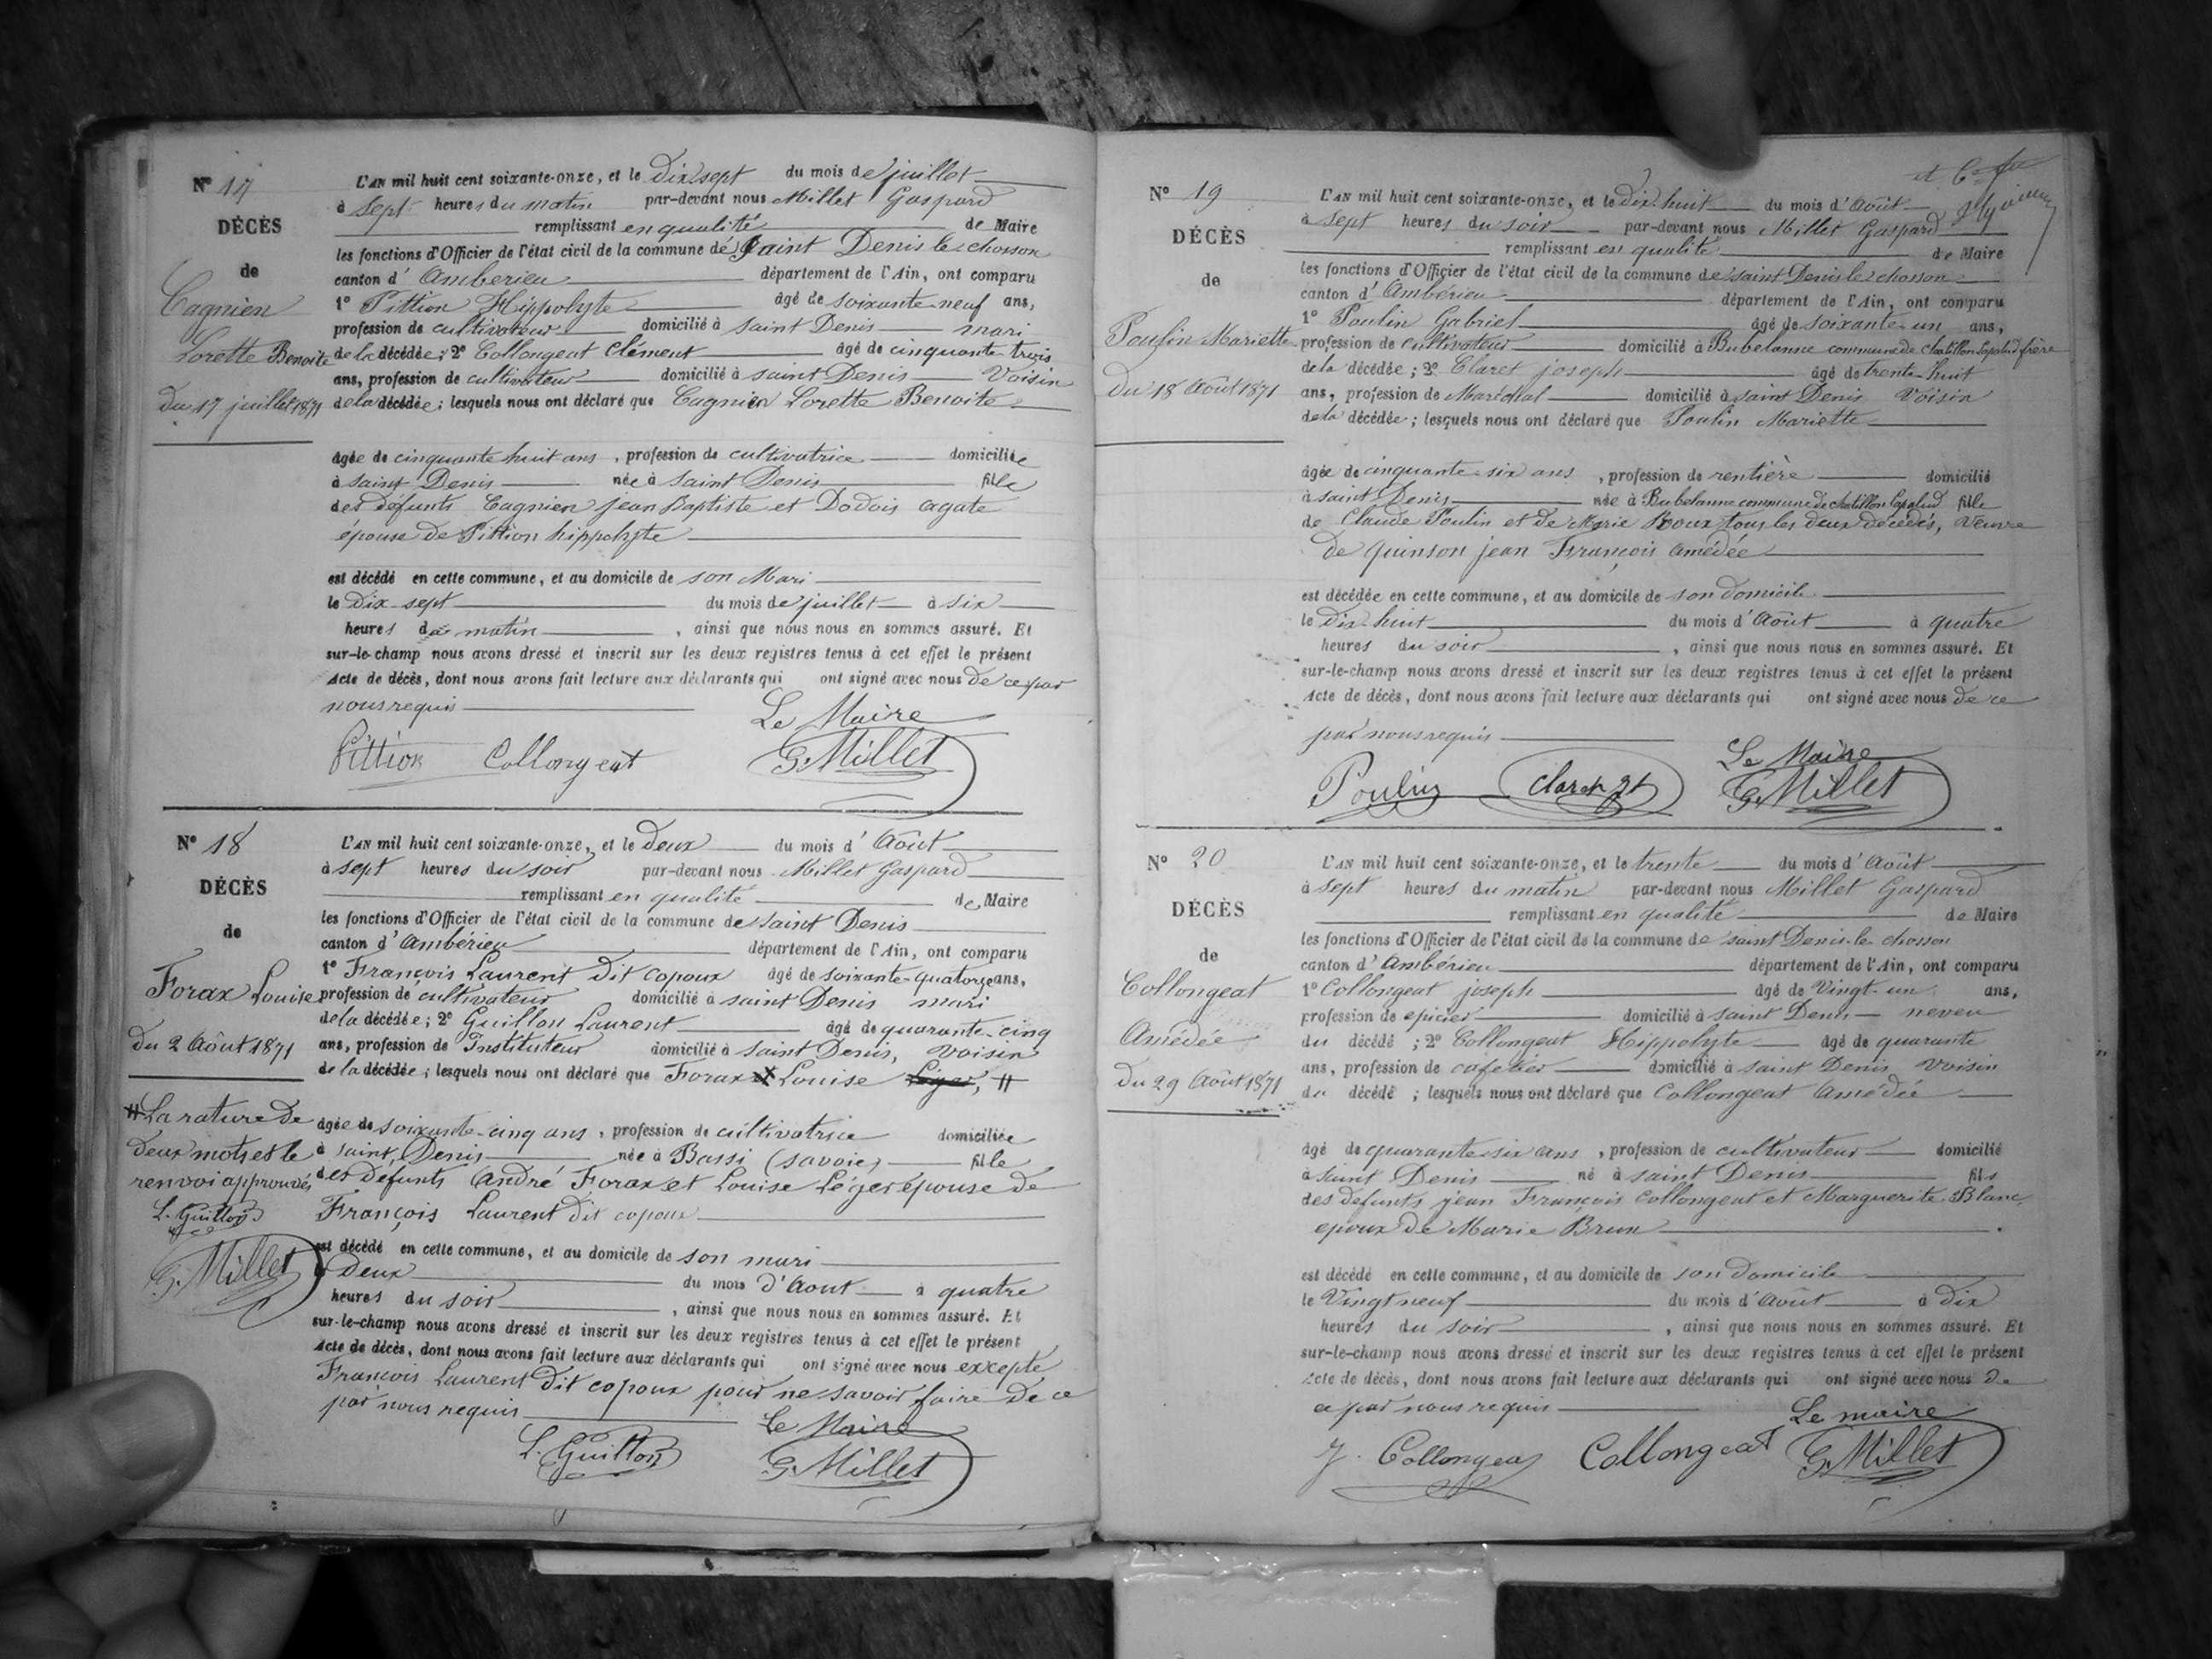 N° 17
DÉCÈS
de
Cagnien
Lorette Benoite
Du 17 juillet 1871
L'AN mil huit cent soixante-onze, et le Dix sept du mois de juillet
à sept heures du matin par-devant nous Millet Gaspard
remplissant en qualité de Maire
les fonctions d'Officier de l'état civil de la commune de Saint Denis le chosson
canton d'Amberieu département de l'Ain, ont comparu
1° Pittion Hippolyte âgé de soixante-neuf ans,
profession de cultivateur domicilié à saint Denis mari
de la décédée; 2° Collongeat Clément âgé de cinquante-trois
ans, profession de cultivateur domicilié à saint Denis Voisin
de la décédée; lesquels nous ont déclaré que Cagnien Lorette Benoite
âgée de cinquante huit ans, profession de cultivatrice domiciliée
à saint Denis née à saint Denis fille
des défunts Cagnien jean Baptiste et Dodois agate
épouse de Pittion hippolyte
est décédé en cette commune, et au domicile de son Mari
le Dix-sept du mois de juillet à six
heures du matin, ainsi que nous nous en sommes assuré. Et
sur-le-champ nous avons dressé et inscrit sur les deux registres tenus à cet effet le présent
Acte de décès, dont nous avons fait lecture aux déclarants qui ont signé avec nous de ce par
nous requis
Le Maire
Pittion Collongeat G. Millet
N° 18
DÉCÈS
de
Forax Louise
Du 2 Août 1871
L'AN mil huit cent soixante-onze, et le Deux du mois d'Août
à sept heures du soir par-devant nous Millet Gaspard
remplissant en qualité de Maire
les fonctions d'Officier de l'état civil de la commune de saint Denis
canton d'Ambérieu département de l'Ain, ont comparu
1° François Laurent dit copoux âgé de soixante-quatorze ans,
profession de cultivateur domicilié à saint Denis mari
de la décédée; 2° Guillon Laurent âgé de quarante-cinq
ans, profession de Instituteur domicilié à saint Denis, voisin
de la décédée; lesquels nous ont déclaré que Forax Louise Léger, #
# La rature de
deux mots et le
renvoi approuvés
L. Guillon
G. Millet
âgée de soixante-cinq ans, profession de cultivatrice domiciliée
à saint Denis née à Bassi (savoie) fille
des défunts André Forax et Louise Léger épouse de
François Laurent dit copoux
est décédé en cette commune, et au domicile de son mari
le Deux du mois d'Aout à quatre
heures du soir, ainsi que nous nous en sommes assuré. Et
sur-le-champ nous avons dressé et inscrit sur les deux registres tenus à cet effet le présent
Acte de décès, dont nous avons fait lecture aux déclarants qui ont signé avec nous excepté
François Laurent dit copoux pour ne savoir faire de ce
par nous requis
Le Maire
L. Guillon G. Millet
N° 19
DÉCÈS
de
Poulin Mariette
Du 18 Août 1871
L'AN mil huit cent soixante-onze, et le dix-huit du mois d'Août
à sept heures du soir par-devant nous Millet Gaspard
remplissant en qualité de Maire
les fonctions d'Officier de l'état civil de la commune de saint Denis le chosson
canton d'Ambérieu département de l'Ain, ont comparu
1° Poulin Gabriel âgé de soixante-un ans,
profession de cultivateur domicilié à Bubelanne commune de chatillon lapalud frère
de la décédée; 2° Claret joseph âgé de trente-huit
ans, profession de Maréchal domicilié à saint Denis Voisin
de la décédée; lesquels nous ont déclaré que Poulin Mariette
âgée de cinquante-six ans, profession de rentière domicilié
à saint Denis née à Bubelanne commune de chatillon lapalud fille
de Claude Poulin et de Marie Roux tous les deux décédés, veuve
de quinson jean François amédée
est décédée en cette commune, et au domicile de son domicile
le Dix-huit du mois d'Août à quatre
heures du soir, ainsi que nous nous en sommes assuré. Et
sur-le-champ nous avons dressé et inscrit sur les deux registres tenus à cet effet le présent
Acte de décès, dont nous avons fait lecture aux déclarants qui ont signé avec nous de ce
par nous requis
Le Maire
Poulin G. Millet
N° 20
DÉCÈS
de
Collongeat
Amédée
Du 29 Août 1871
L'AN mil huit cent soixante-onze, et le trente du mois d'Août
à sept heures du matin par-devant nous Millet Gaspard
remplissant en qualité de Maire
les fonctions d'Officier de l'état civil de la commune de saint Denis-le chosson
canton d'Ambérieu département de l'Ain, ont comparu
1° Collongeat joseph âgé de Vingt-un ans,
profession de epicier domicilié à saint Denis neveu
du décédé; 2° Collongeat Hippolyte âgé de quarante
ans, profession de cafetier domicilié à saint Denis Voisin
du décédé; lesquels nous ont déclaré que Collongeat Amédée
âgé de quarante-six ans, profession de cultivateur domicilié
à saint Denis né à saint Denis fils
des defunts jean François Collongeat et Marguerite Blanc,
epoux de Marie Brun
est décédé en cette commune, et au domicile de son Domicile
le Vingt neuf du mois d'Août à dix
heures du soir, ainsi que nous nous en sommes assuré. Et
sur-le-champ nous avons dressé et inscrit sur les deux registres tenus à cet effet le présent
Acte de décès, dont nous avons fait lecture aux déclarants qui ont signé avec nous de
ce par nous requis
Le maire
J. Collongeat Collongeat G. Millet